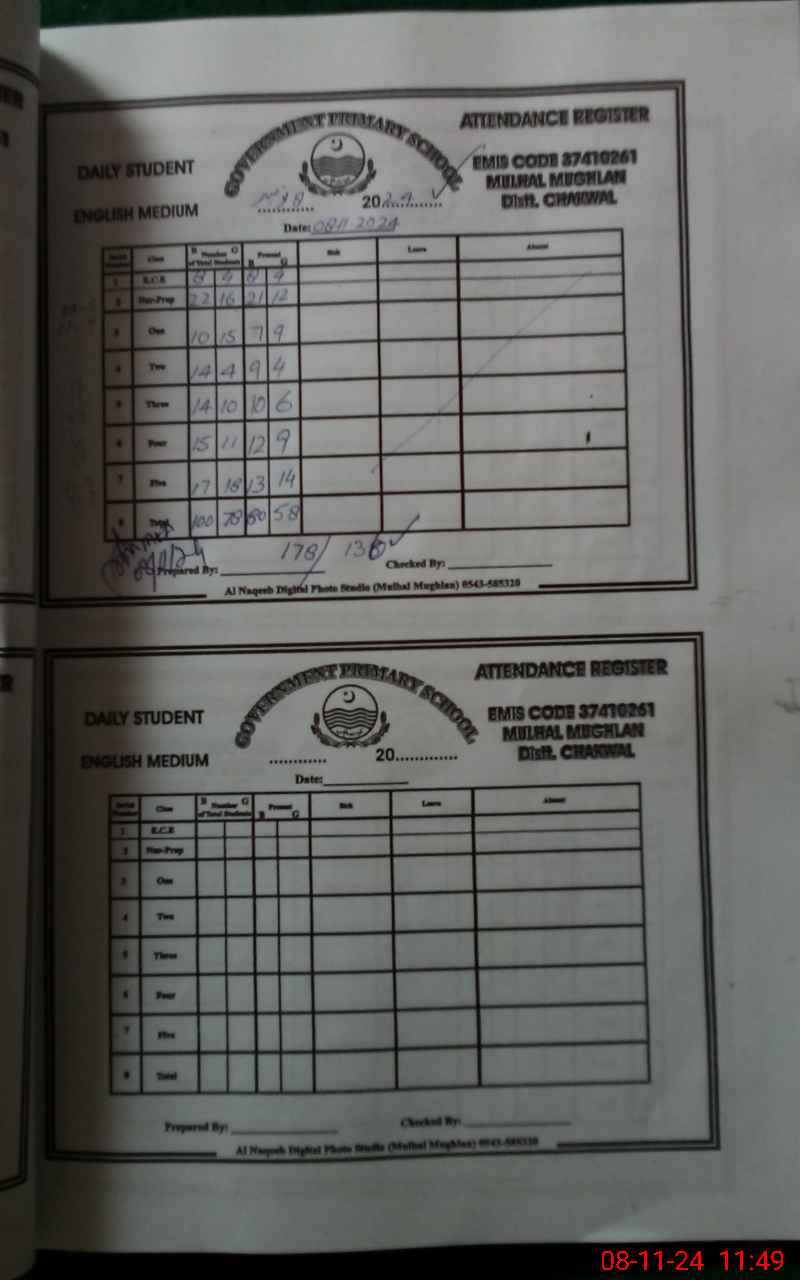 GOVERNMENT PRIMARY SCHOOL
ATTENDANCE REGISTER
DAILY STUDENT
EMIS CODE 37410261
MULHAL MUGHLAN
ENGLISH MEDIUM
2024
Distt. CHAKWAL
Date: 08 11 2024
Serial Number Class B Number G of Total Students B Present G Sick Leave Absent
1 E.C.E 8 4 8 4
2 Nur-Prep 22 16 21 12
3 One 10 15 7 9
4 Two 14 4 9 4
5 Three 14 10 10 6
6 Four 15 11 12 9
7 Five 17 18 13 14
8 Total 100 78 80 58
178/ 138
Prepared By: Checked By:
Al Naqeeb Digital Photo Studio (Mulhal Mughlan) 0543-585320
GOVERNMENT PRIMARY SCHOOL
ATTENDANCE REGISTER
DAILY STUDENT
EMIS CODE 37410261
MULHAL MUGHLAN
ENGLISH MEDIUM
............ 20.............
Distt. CHAKWAL
Date:
Serial Number Class B Number G of Total Students B Present G Sick Leave Absent
1 E.C.E
2 Nur-Prep
3 One
4 Two
5 Three
6 Four
7 Five
8 Total
Prepared By: Checked By:
Al Naqeeb Digital Photo Studio (Mulhal Mughlan) 0543-585320
08-11-24 11:49